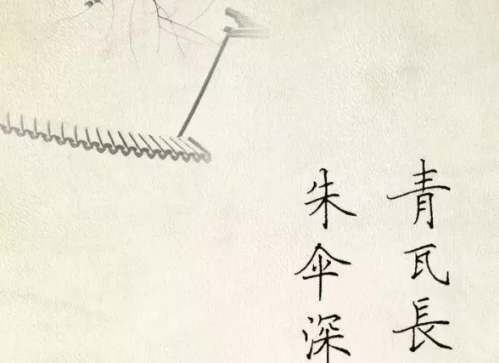 青瓦長
朱伞深